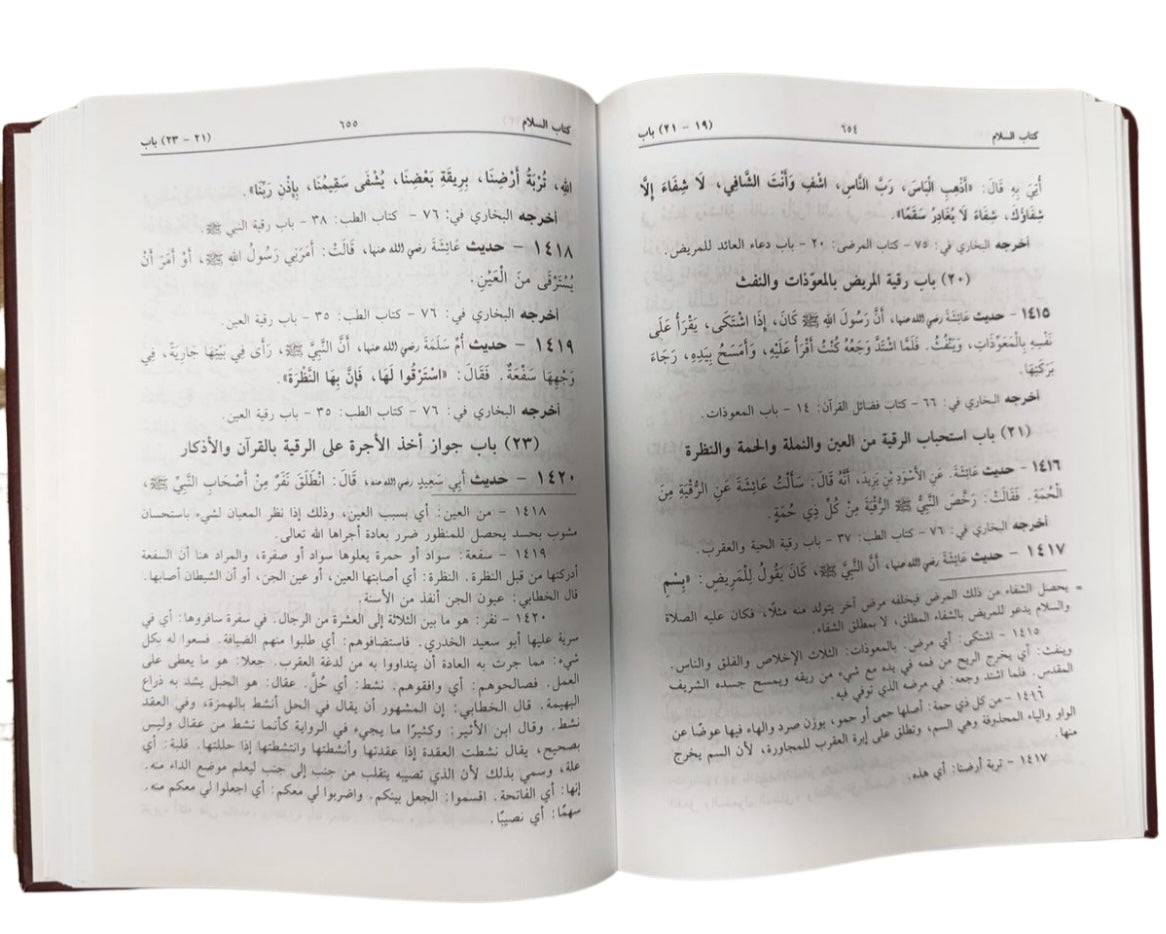 كتاب السلام
٦٥٤
(١٩ - ٢١) باب
أُتِيَ بِهِ قَالَ: «أَذْهِبِ الْبَاسَ، رَبَّ النَّاسِ، اشْفِ وَأَنْتَ الشَّافِي، لَا شِفَاءَ إِلَّا
شِفَاؤُكَ، شِفَاءً لَا يُغَادِرُ سَقَمًا».
أخرجه البخاري في: ٧٥ - كتاب المرضى: ٢٠ - باب دعاء العائد للمريض.
(٢٠) باب رقية المريض بالمعوّذات والنفث
١٤١٥ - حديث عَائِشَةَ رضي الله عنها، أَنَّ رَسُولَ اللهِ ﷺ كَانَ، إِذَا اشْتَكَى، يَقْرَأُ عَلَى
نَفْسِهِ بِالْمُعَوِّذَاتِ، وَيَنْفُثُ. فَلَمَّا اشْتَدَّ وَجَعُهُ كُنْتُ أَقْرَأُ عَلَيْهِ، وَأَمْسَحُ بِيَدِهِ، رَجَاءَ
بَرَكَتِهَا.
أخرجه البخاري في: ٦٦ - كتاب فضائل القرآن: ١٤ - باب المعوذات.
(٢١) باب استحباب الرقية من العين والنملة والحمة والنظرة
١٤١٦ - حديث عَائِشَةَ. عَنِ الْأَسْوَدِ بْنِ يَزِيدَ، أَنَّهُ قَالَ: سَأَلْتُ عَائِشَةَ عَنِ الرُّقْيَةِ مِنَ
الْحُمَةِ. فَقَالَتْ: رَخَّصَ النَّبِيُّ ﷺ الرُّقْيَةَ مِنْ كُلِّ ذِي حُمَةٍ.
أخرجه البخاري في: ٧٦ - كتاب الطب: ٣٧ - باب رقية الحية والعقرب.
١٤١٧ - حديث عَائِشَةَ رضي الله عنها، أَنَّ النَّبِيَّ ﷺ، كَانَ يَقُولُ لِلْمَرِيضِ: «بِسْمِ
= يحصل الشفاء من ذلك المرض فيخلفه مرض آخر يتولد منه مثلًا، فكان عليه الصلاة
والسلام يدعو للمريض بالشفاء المطلق، لا بمطلق الشفاء.
١٤١٥ - اشتكى: أي مرض. بالمعوذات: الثلاث الإخلاص والفلق والناس.
وينفث: أي يخرج الريح من فمه في يده مع شيء من ريقه ويمسح جسده الشريف
المقدس. فلما اشتد وجعه: في مرضه الذي توفي فيه.
١٤١٦ - من كل ذي حمة: أصلها حمى أو حمو، بوزن صرد والهاء فيها عوضًا عن
الواو والياء المحذوفة وهي السم، وتطلق على إبرة العقرب للمجاورة، لأن السم يخرج
منها.
١٤١٧ - تربة أرضنا: أي هذه.
كتاب السلام
٦٥٥
(٢١ - ٢٣) باب
اللهِ، تُرْبَةُ أَرْضِنَا، بِرِيقَةِ بَعْضِنَا، يُشْفَى سَقِيمُنَا، بِإِذْنِ رَبِّنَا».
أخرجه البخاري في: ٧٦ - كتاب الطب: ٣٨ - باب رقية النبي ﷺ.
١٤١٨ - حديث عَائِشَةَ رضي الله عنها، قَالَتْ: أَمَرَنِي رَسُولُ اللهِ ﷺ، أَوْ أَمَرَ أَنْ
يُسْتَرْقَى مِنَ الْعَيْنِ.
أخرجه البخاري في: ٧٦ - كتاب الطب: ٣٥ - باب رقية العين.
١٤١٩ - حديث أُمِّ سَلَمَةَ رضي الله عنها، أَنَّ النَّبِيَّ ﷺ، رَأَى فِي بَيْتِهَا جَارِيَةً، فِي
وَجْهِهَا سَفْعَةٌ. فَقَالَ: «اسْتَرْقُوا لَهَا، فَإِنَّ بِهَا النَّظْرَةَ».
أخرجه البخاري في: ٧٦ - كتاب الطب: ٣٥ - باب رقية العين.
(٢٣) باب جواز أخذ الأجرة على الرقية بالقرآن والأذكار
١٤٢٠ - حديث أَبِي سَعِيدٍ رضي الله عنه، قَالَ: انْطَلَقَ نَفَرٌ مِنْ أَصْحَابِ النَّبِيِّ ﷺ،
١٤١٨ - من العين: أي بسبب العين، وذلك إذا نظر المعيان لشيء باستحسان
مشوب بحسد يحصل للمنظور ضرر بعادة أجراها الله تعالى.
١٤١٩ - سفعة: سواد أو حمرة يعلوها سواد أو صفرة، والمراد هنا أن السفعة
أدركتها من قبل النظرة. النظرة: أي أصابتها العين، أو عين الجن، أو أن الشيطان أصابها.
قال الخطابي: عيون الجن أنفذ من الأسنة.
١٤٢٠ - نفر: هو ما بين الثلاثة إلى العشرة من الرجال. في سفرة سافروها: أي في
سرية عليها أبو سعيد الخدري. فاستضافوهم: أي طلبوا منهم الضيافة. فسعوا له بكل
شيء: مما جرت به العادة أن يتداووا به من لدغة العقرب. جعلًا: هو ما يعطى على
العمل. فصالحوهم: أي وافقوهم. نشط: أي حُلَّ. عقال: هو الحبل يشد به ذراع
البهيمة. قال الخطابي: إن المشهور أن يقال في الحل أنشط بالهمزة، وفي العقد
نشط. وقال ابن الأثير: وكثيرًا ما يجيء في الرواية كأنما نشط من عقال وليس
بصحيح، يقال نشطت العقدة إذا عقدتها وأنشطتها وانتشطتها إذا حللتها. قلبة: أي
علة، وسمي بذلك لأن الذي تصيبه يتقلب من جنب إلى جنب ليعلم موضع الداء منه.
إنها: أي الفاتحة. اقسموا: الجعل بينكم. واضربوا لي معكم: أي اجعلوا لي معكم منه.
سهمًا: أي نصيبًا.